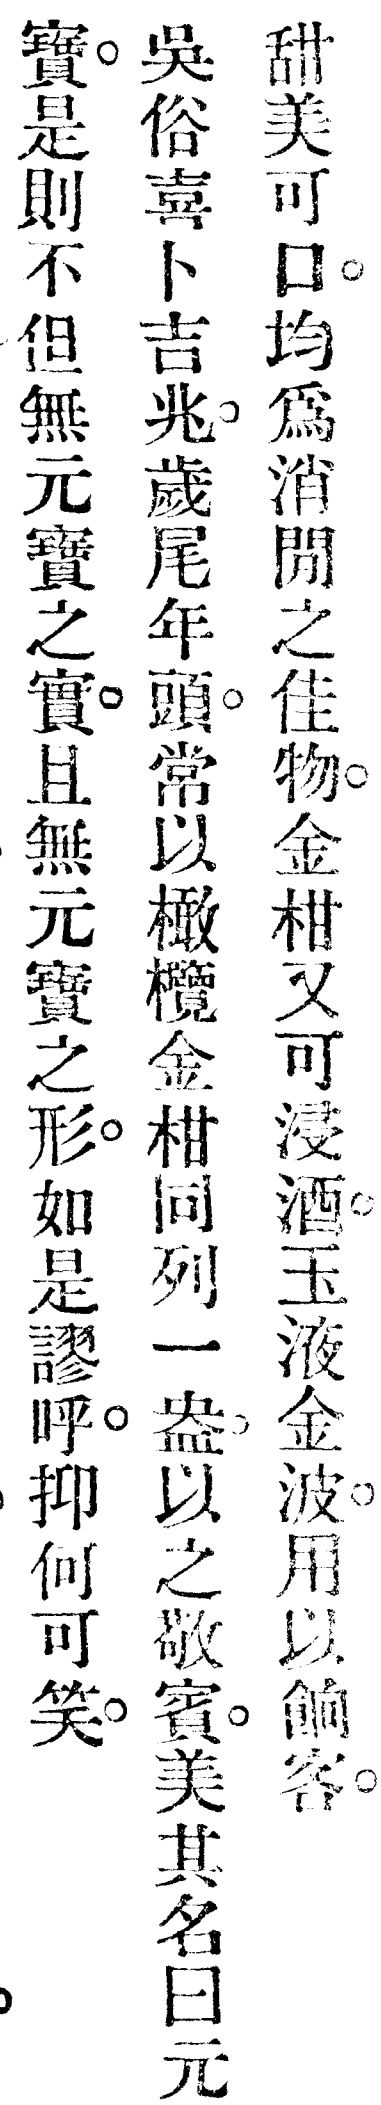 甜美可口。均爲消閒之佳物。金柑又可浸酒。玉液金波。用以餉客。
吳俗喜卜吉兆。歲尾年頭。常以橄欖金柑同列一盎。以之敬賓。美其名曰元
寶。是則不但無元寶之實。且無元寶之形。如是謬呼。抑何可笑。